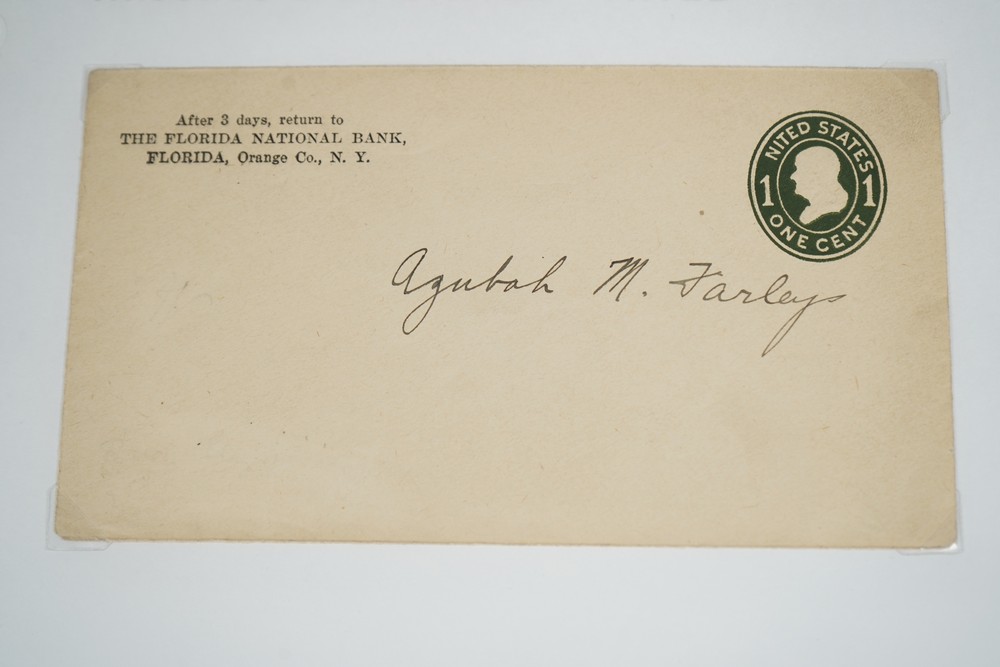 After 3 days, return to
THE FLORIDA NATIONAL BANK,
FLORIDA, Orange Co., N. Y.
UNITED STATES
1 1
ONE CENT
Azubah M. Farleys